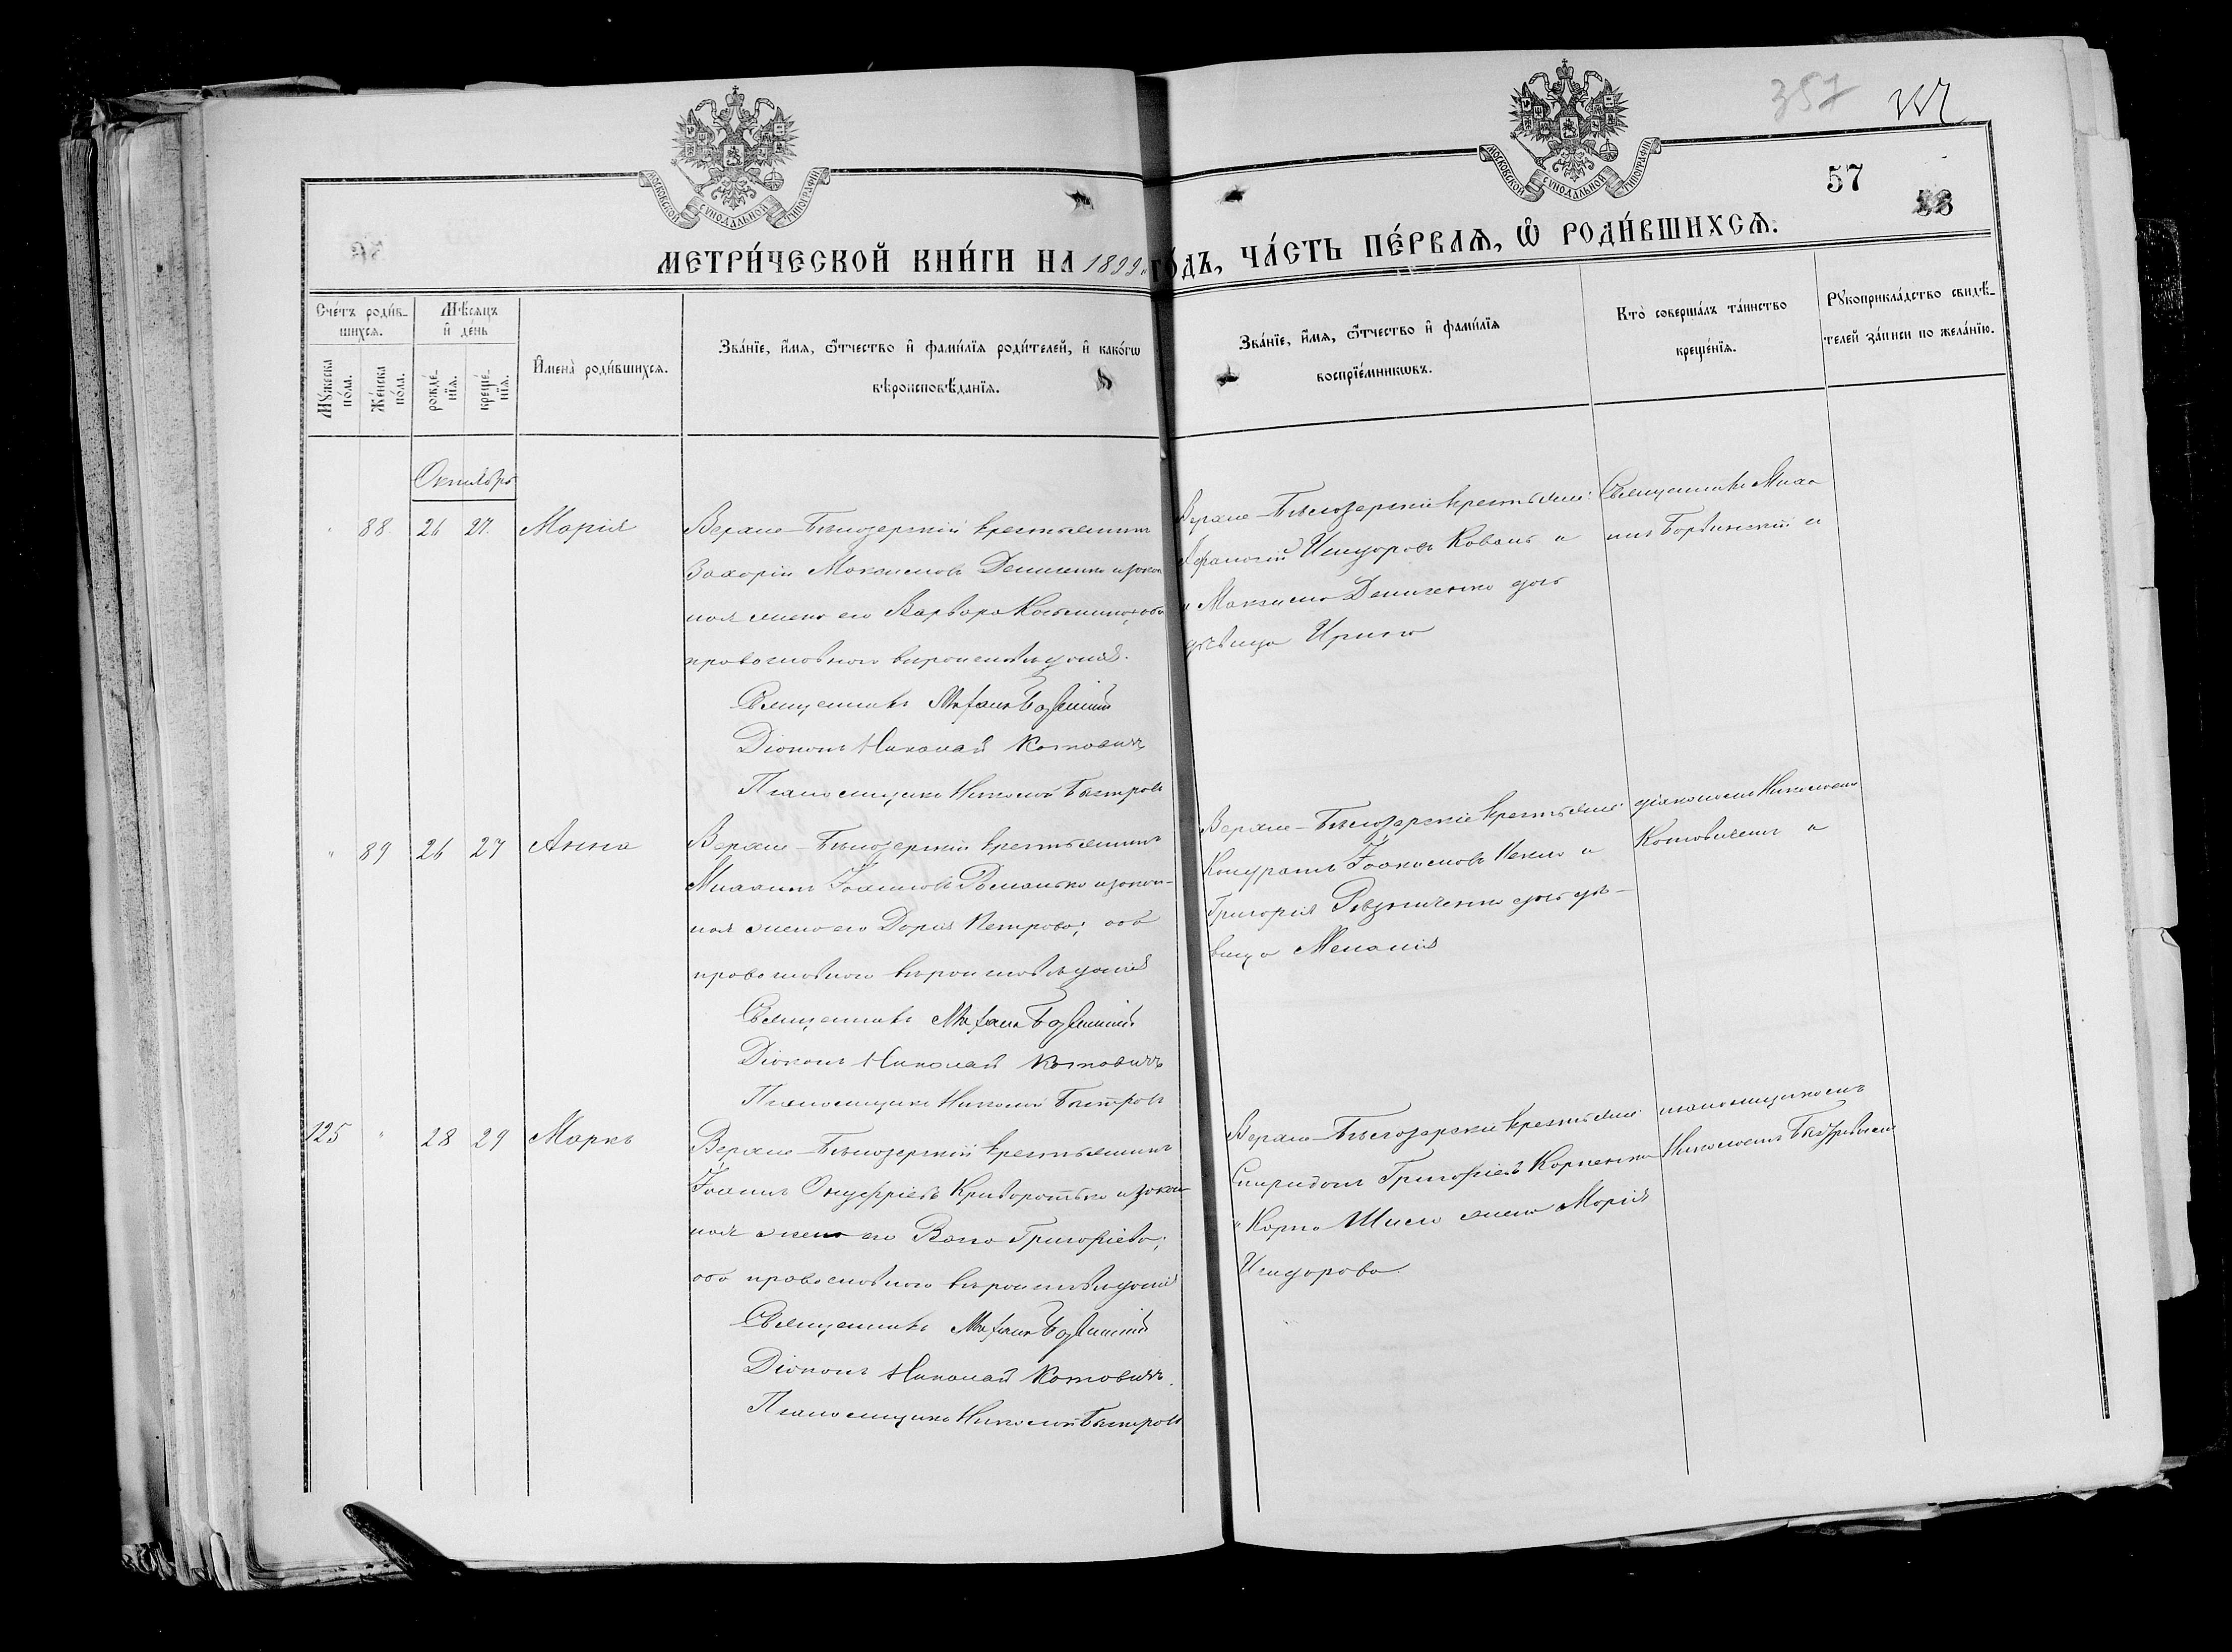 357
57
58
МОСКОВСКОЙ СѴНОДАЛЬНОЙ ТИПОГРАФІИ
МОСКОВСКОЙ СѴНОДАЛЬНОЙ ТИПОГРАФІИ
МЕТРИ́ЧЕСКОЙ КНИ́ГИ НА 1899 ГО́ДЪ, ЧА́СТЬ ПЕ́РВАѦ, Ѡ҆ РОДИ́ВШИХСѦ.
Сче́тъ роди́в-
шихсѧ.
Мꙋ́жеска по́ла.
Же́нска по́ла.
Мѣ́сѧцъ
и҆ де́нь
рожде́-нїѧ.
креще́-нїѧ.
И҆мена̀ роди́вшихсѧ.
Зва́нїе, и҆́мѧ, ѻ҆́тчество и҆ фами́лїѧ роди́телей, и҆ како́гѡ
вѣроисповѣ́данїѧ.
Зва́нїе, и҆́мѧ, ѻ҆́тчество и҆ фами́лїѧ
воспрїе́мникѡвъ.
Кто̀ соверша́лъ та́инство
креще́нїѧ.
Рꙋкоприкла́дство свидѣ́-
телей за́писи по жела́нїю.
Октябрь
" 88 26 27. Марія
Верхне-Бѣлозерскій крестьянинъ
Захарій Максимовъ Денисенко и закон
ная жена его Варвара Косьмина; оба
православнаго вѣроисповѣданія.
Священникъ Михаилъ
Діаконъ Николай Котовичъ
Псаломщикъ Николай Быстровъ
Верхне-Бѣлозерскіе крестьяне:
Исидоровъ Коваль и
Максима Денисенко дочь
дѣвица Ирина
Священникъ Миха
илъ и
" 89 26 27 Анна
Верхне-Бѣлозерскій крестьянинъ
Михаилъ Іоанновъ Романько и закон-
ная жена его Дарія Петрова; оба
православнаго вѣроисповѣданія
Священникъ Михаилъ
Діаконъ Николай Котовичъ
Псаломщикъ Николай Быстровъ
Верхне-Бѣлозерскіе крестьяне:
Кондратъ Іоакимовъ и
Григорія дочь дѣ-
вица Меланія
діакономъ Николаемъ
Котовичемъ и
125 " 28 29 Маркъ
Верхне-Бѣлозерскій крестьянинъ
Іоаннъ Онуфріевъ Криворотько и закон-
ная жена его Васса Григоріева;
оба православнаго вѣроисповѣданія
Священникъ Михаилъ
Діаконъ Николай Котовичъ.
Псаломщикъ Николай Быстровъ
Верхне-Бѣлозерскіе крестьяне:
Спиридонъ Григоріевъ Корпенко
и Карпа Шило жена Марія
Исидорова.
псаломщикомъ
Николаемъ Быстровымъ